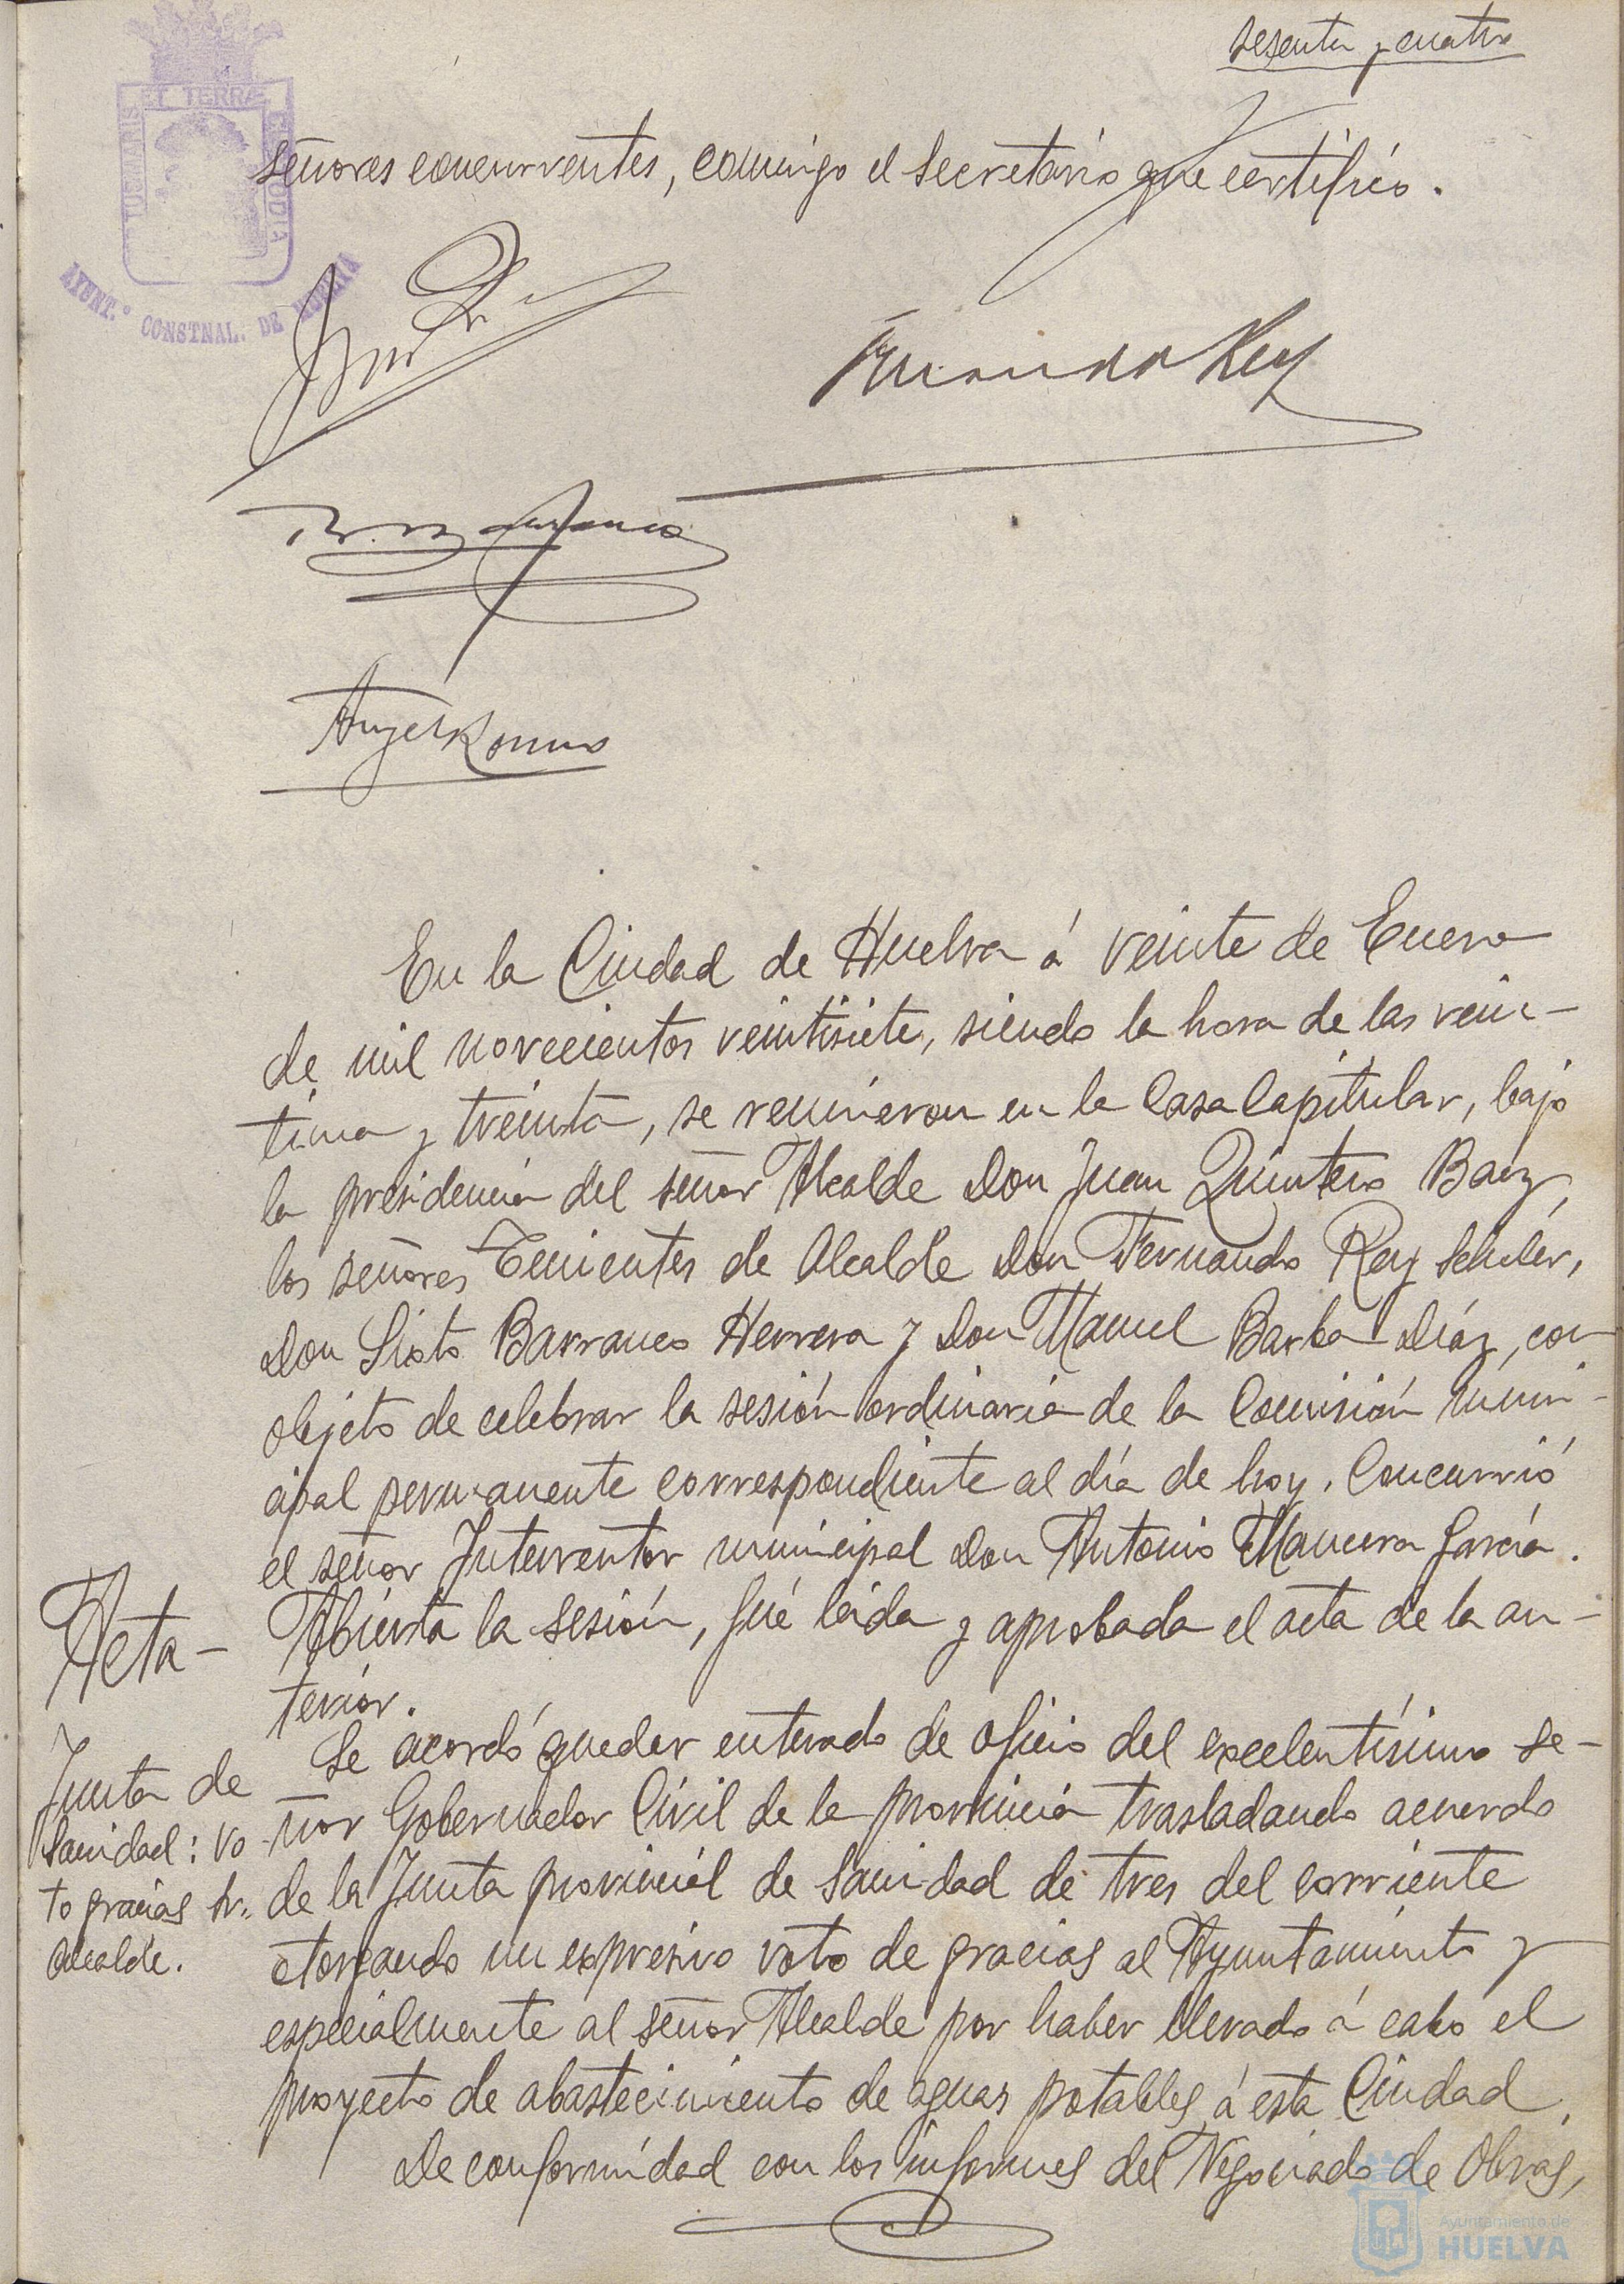 sesenta y cuatro
PORTUS MARIS ET TERRÆ CUSTODIA
AYUNT.º CONSTNAL. DE HUELVA
señores concurrentes, conmigo el Secretario que certifico.
Fernando Rey
Angel Romero
En la Ciudad de Huelva á veinte de Enero
de mil novecientos veintisiete, siendo la hora de las vein-
tiuna y treinta, se reunieron en la Casa Capitular, bajo
la presidencia del señor Alcalde Don Juan Quintero Baez,
los señores Tenientes de Alcalde Don Fernando Rey Schuler,
Don Sixto Barranco Herrera y Don Manuel Barba Díaz, con
objeto de celebrar la sesión ordinaria de la Comisión muni-
cipal permanente correspondiente al día de hoy. Concurrió
el señor Interventor municipal Don Antonio Mancera García.
Acta-
Abierta la sesión, fué leida y aprobada el acta de la an-
terior.
Junta de
Sanidad: vo
to gracias Sr.
Alcalde.
Se acordó quedar enterado de oficio del excelentísimo se-
ñor Gobernador Civil de la provincia trasladando acuerdo
de la Junta provincial de Sanidad de tres del corriente
otorgando un expresivo voto de gracias al Ayuntamiento y
especialmente al señor Alcalde por haber llevado á cabo el
proyecto de abastecimiento de aguas potables á esta Ciudad.
De conformidad con los informes del Negociado de Obras,
Ayuntamiento de
HUELVA